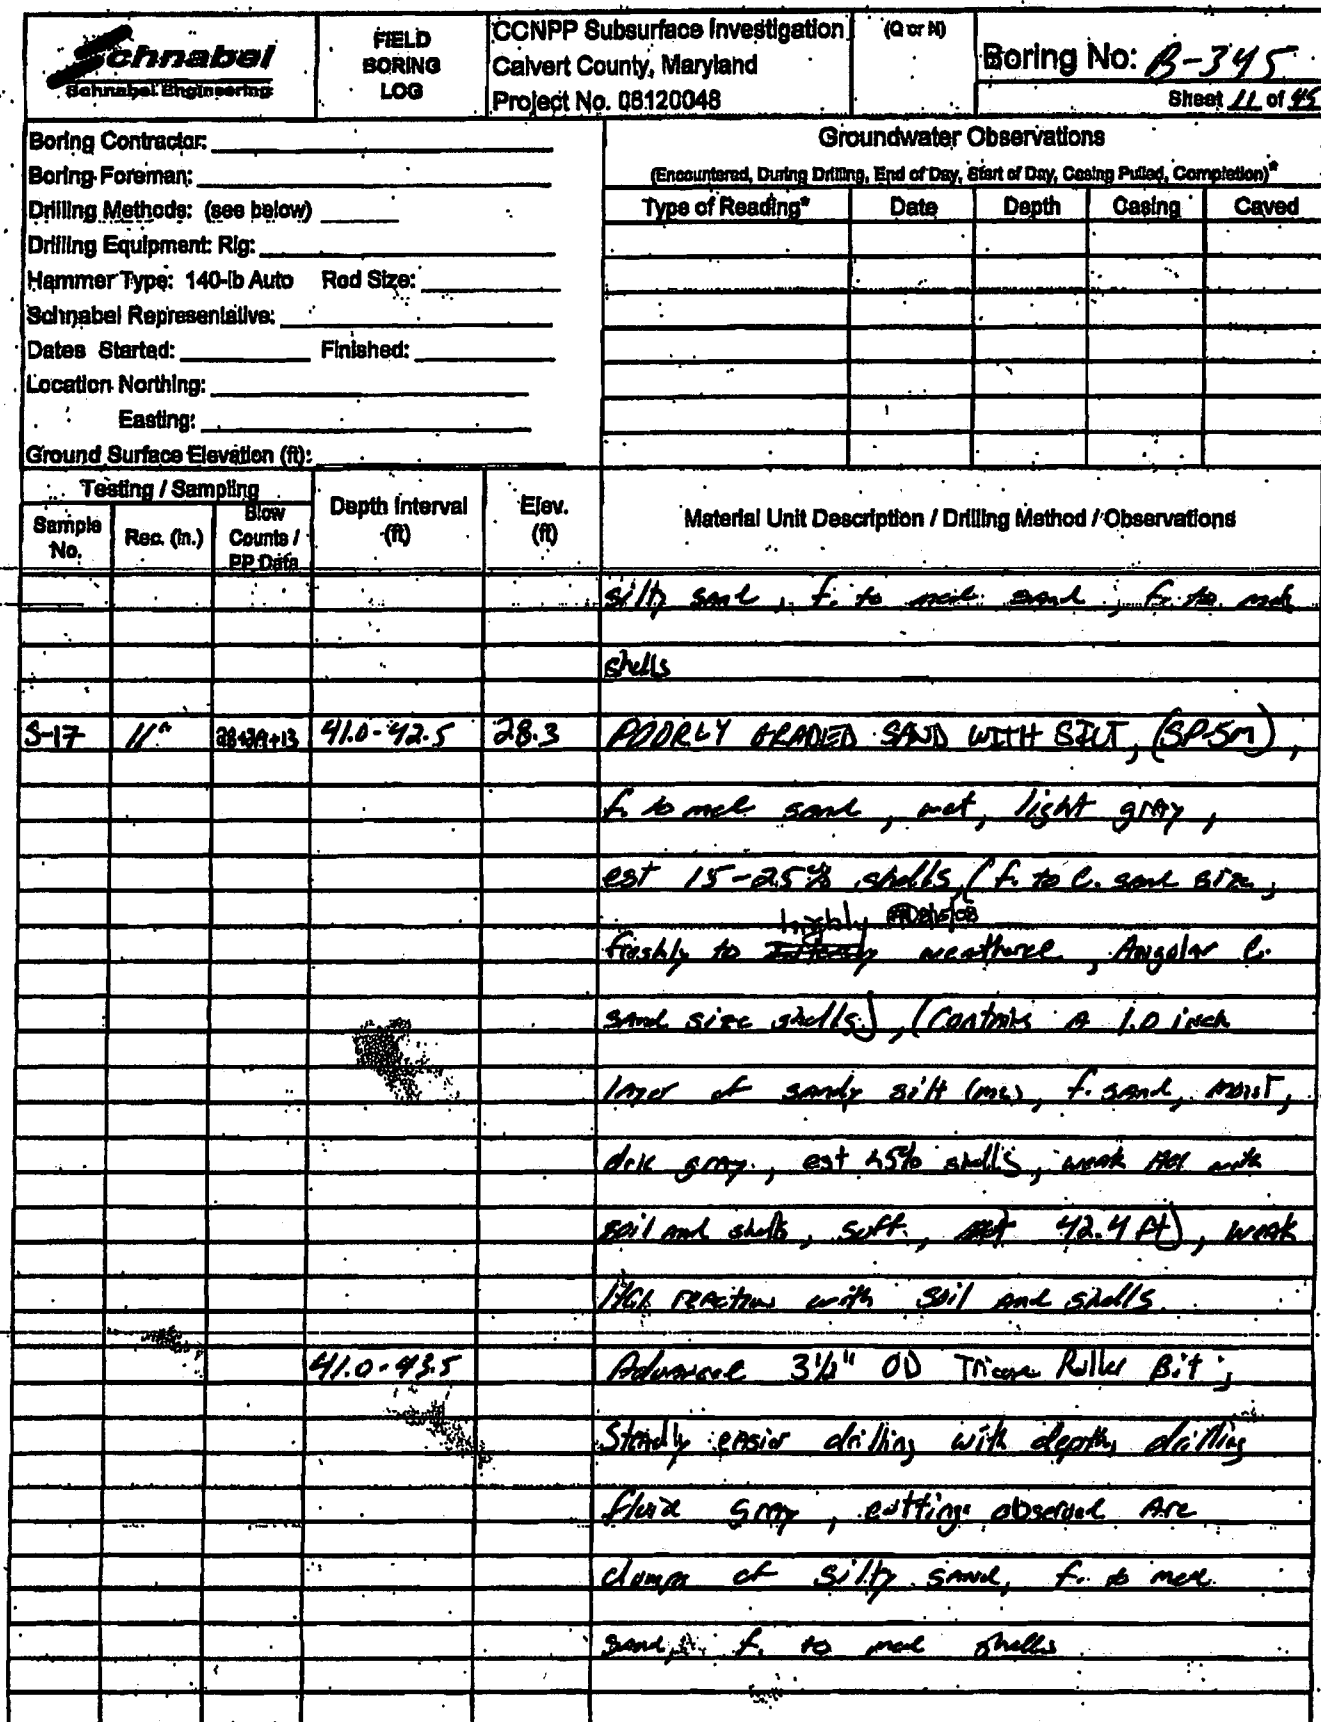 Schnabel
Schnabel Engineering
FIELD
BORING
LOG
CCNPP Subsurface Investigation
Calvert County, Maryland
Project No. 08120048
(Q or N)
Boring No: B-345
Sheet 11 of 45
Boring Contractor:
Boring Foreman:
Drilling Methods: (see below)
Drilling Equipment: Rig:
Hammer Type: 140-lb Auto Rod Size:
Schnabel Representative:
Dates Started: Finished:
Location Northing:
Easting:
Ground Surface Elevation (ft):
Groundwater Observations
(Encountered, During Drilling, End of Day, Start of Day, Casing Pulled, Completion)*
Type of Reading* Date Depth Casing Caved
Testing / Sampling
Sample No. Rec. (in.) Blow Counts / PP Data
Depth Interval (ft)
Elev. (ft)
Material Unit Description / Drilling Method / Observations
silty sand, f. to med sand, f. to med
shells
S-17 11" 41.0-42.5 28.3 POORLY GRADED SAND WITH SILT, (SP-SM),
f. to med sand, wet, light gray,
est 15-25% shells, (f. to c. sand size,
highly
freshly to weathered, Angular c.
sand size shells), (Contains A 1.0 inch
layer of sandy silt (ML), f. sand, moist,
dark gray, est <5% shells, weak HCl with
soil and shells, soft, 42.4 ft), weak
HCl reaction with soil and shells.
41.0-43.5 Advanced 3 1/2" OD Tricone Roller Bit;
Steadly easier drilling with depth, drilling
fluid gray, cuttings observed Are
clumps of silty sand, f. to med
sand, f. to med shells